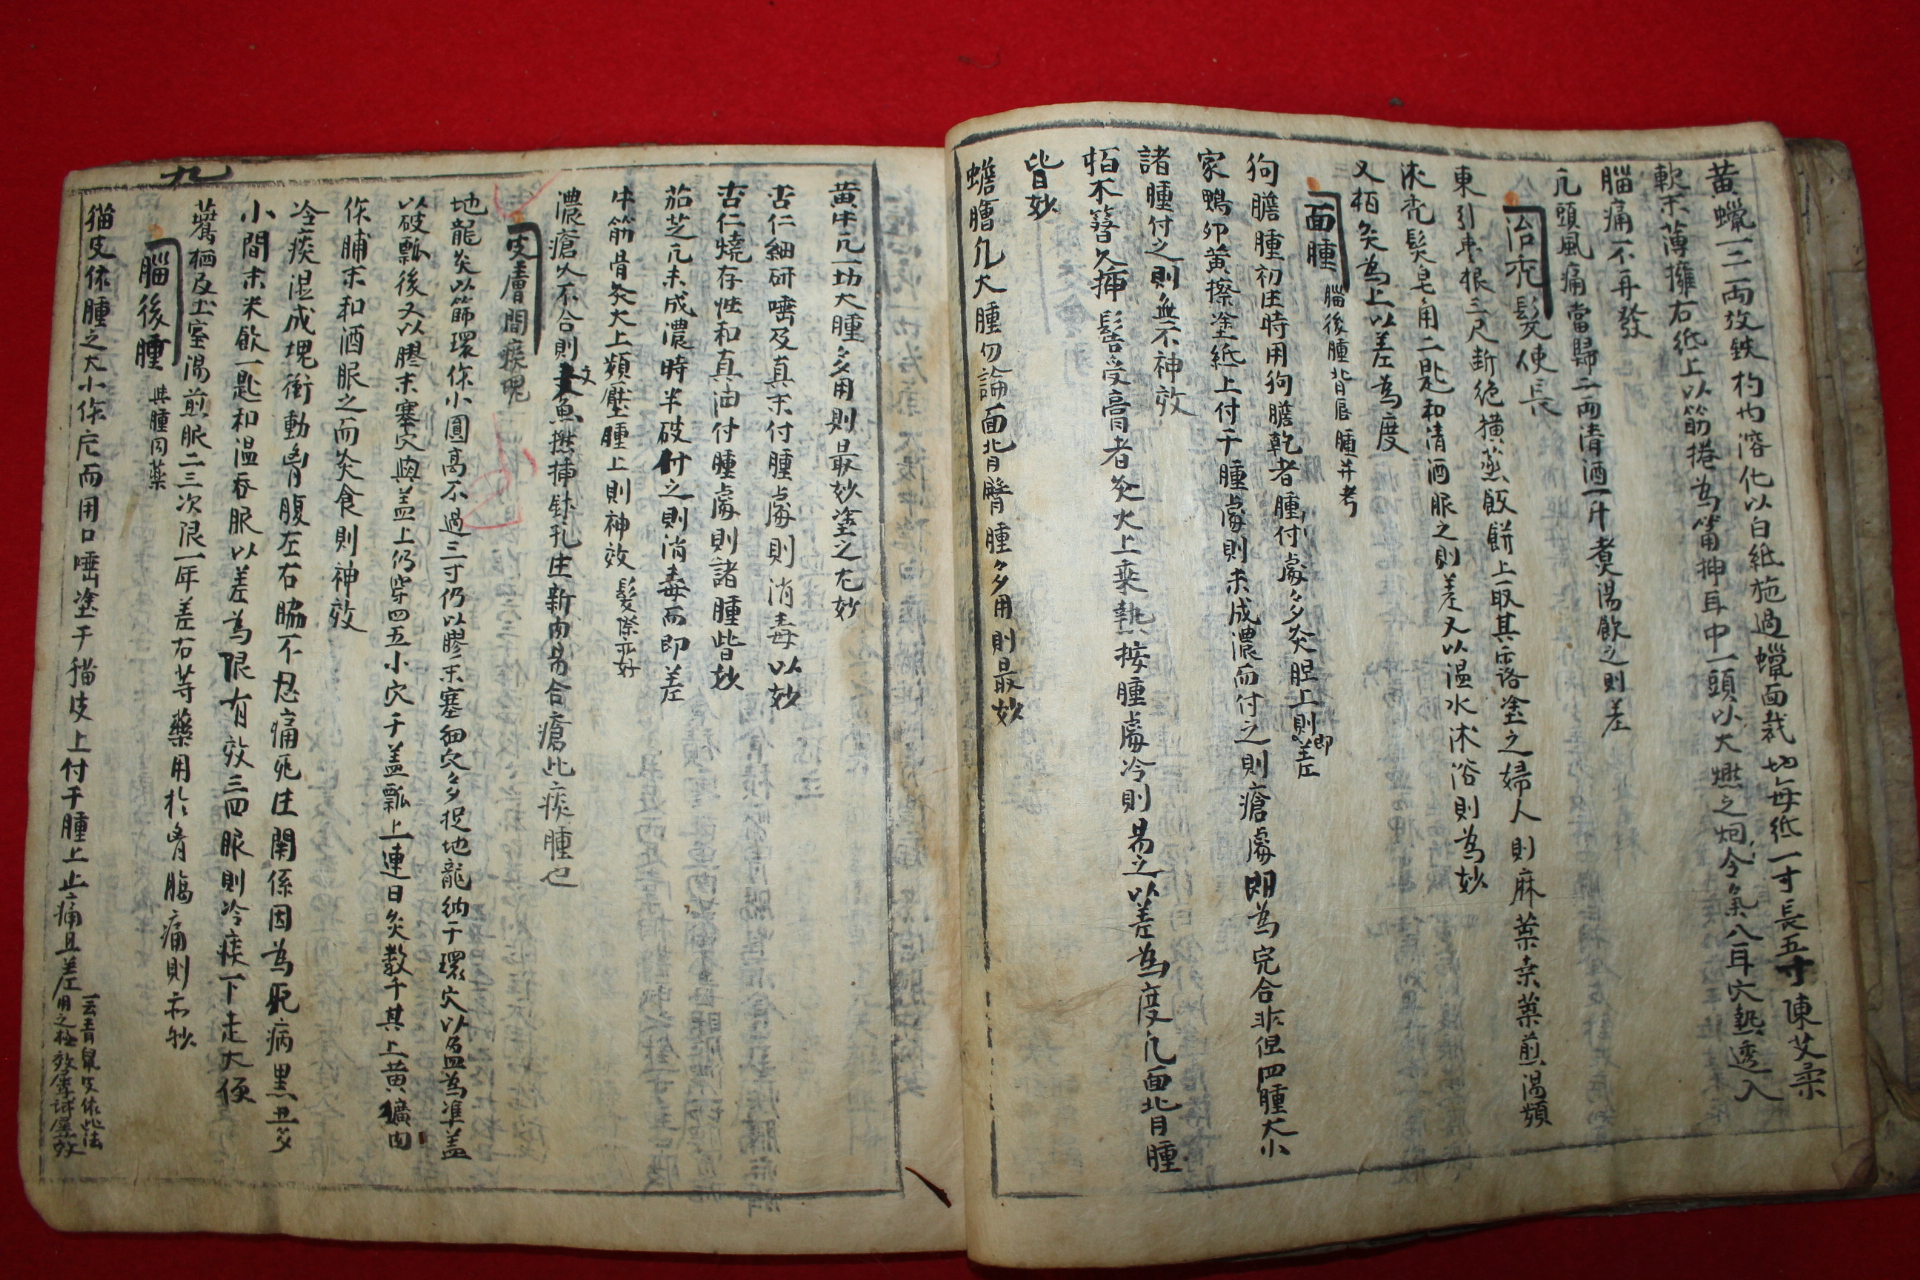 黃蠟一二兩孜鉄杓內溶化以白紙拖過蠟面裁切每紙一寸長五寸陳艾柔
軟末薄攤右紙上以筋捲為筩揷耳中一頭以火燃之烟令氣入耳穴熱透入
腦痛不再發
凢頭風痛當歸二兩清酒一升煮湯飲之則差
治禿髮使長
東引枣根三尺断絕橫蒸飯餠上取其露塗之婦人則麻葉桒葉煎湯頻
沐禿髮皂角二匙和清酒服之則差又以溫水沐浴則為妙
又栢灸為上以差為度
面腫 腦後腫背唇腫并考
狗膽腫初庄時用狗膽乾者腫付處多灸胆上則即差
家鴨卵黃擦塗紙上付于腫處則未成濃而付之則瘡處即為完合非但四腫大小
諸腫付之則無不神效
栢木簪久揷髻受膏者灸火上乘熱按腫處冷則易之以差為度凢面背腫
皆妙
蟾膾凢大腫勿論面背臍腫多用則最妙
九
黃牛凢一切大腫多用則最妙塗之尤妙
杏仁細研唾及真末付腫處則消毒以妙
杏仁燒存性和真油付腫處則諸腫皆妙
茄芝凢未成濃時半破付之則消毒而即差
牛筋骨灸大上頻壓腫上則神效 髮際亦好
濃瘡久不合則魚 揷 孔庄新肉易合瘡比痰腫也
皮膚間痰塊
地龍灸以節環作小圓高不過三寸仍以膠末塞細穴多捉地龍納于環穴以盈為准盖
以破瓢後又以膠末塞穴與盖上仍穿四五小穴于盖瓢上連日灸數千其上黃獷肉
作脯末和酒服之而灸食則神效
冷痰濕成塊衝動胷腹左右脇不忍痛死庄関係因為死病黑丑多
小間末米飮一匙和溫吞服以差為限有效三四服則冷痰下走大便
鷰栖及土室湯煎服二三次限一年差右等藥用於胷膓痛則亦妙
腦後腫 與腫同藥
猫皮依腫之大小作片而用口唾塗于猫皮上付于腫上止痛且差
一云青鼠皮依此法
用之極效